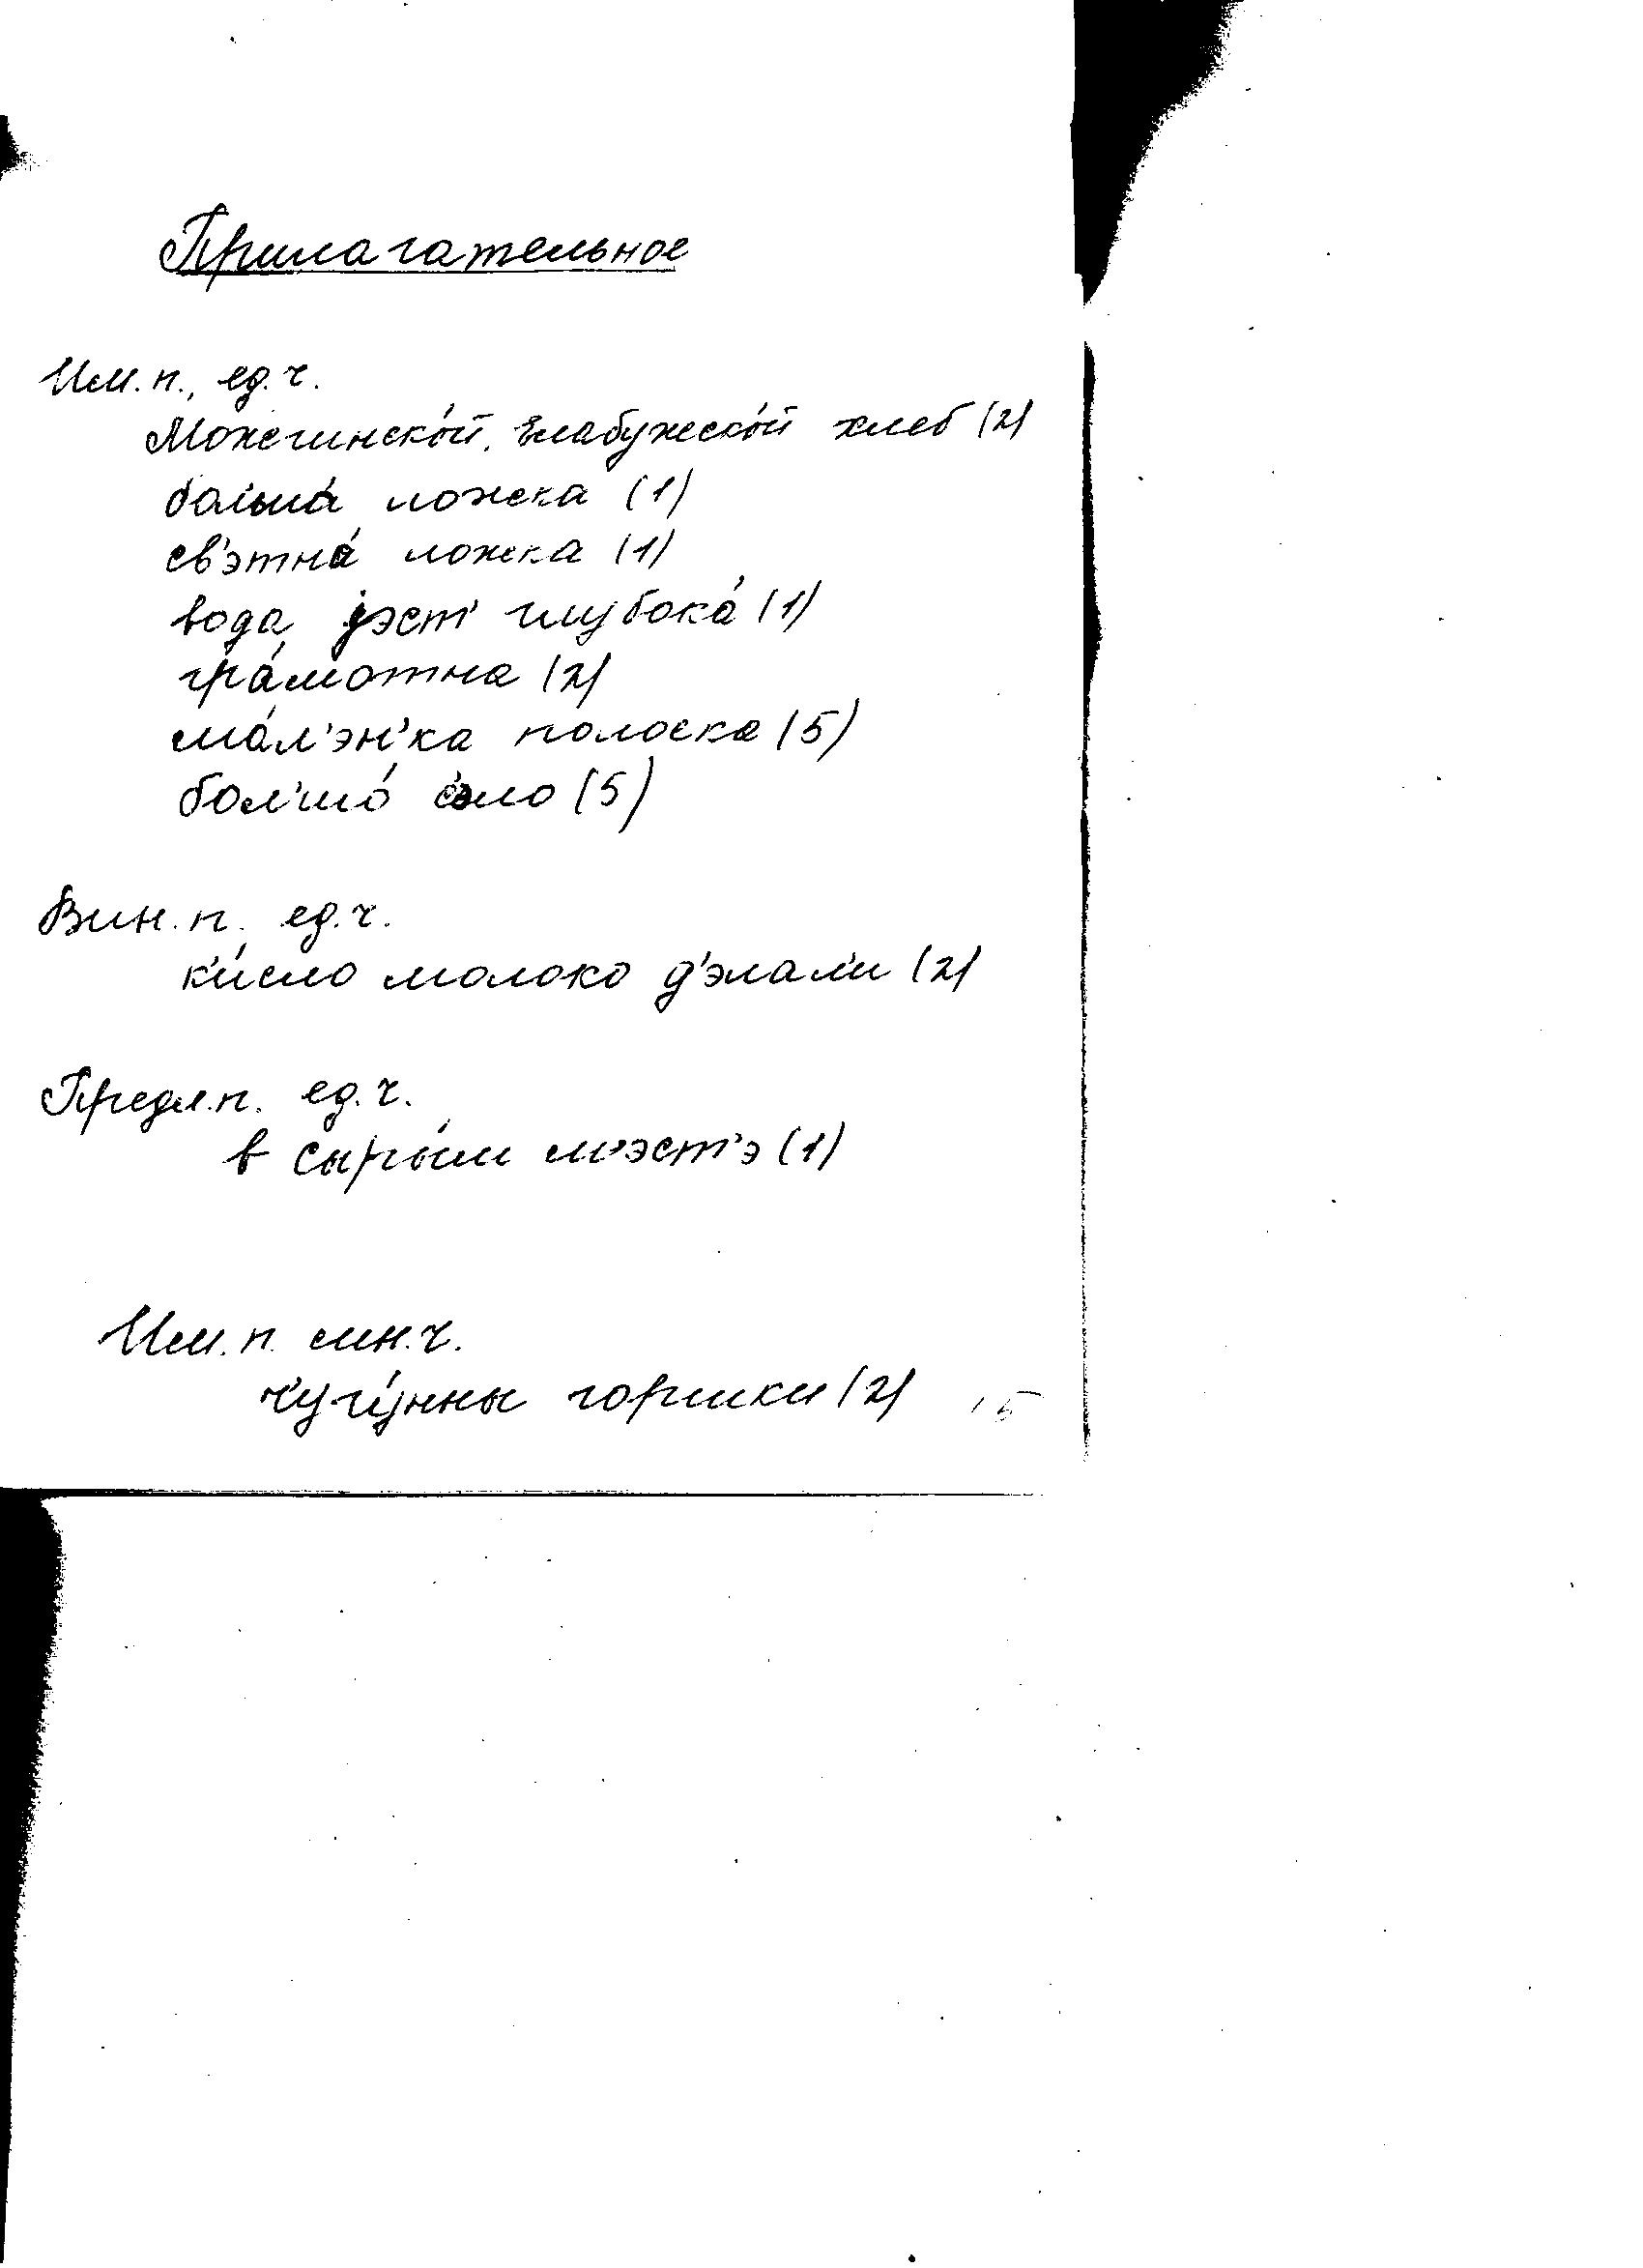 Прилагательное
Им.п., ед.ч.
Можгинско́й, Елабужско́й хлеб (2)
больша́ ложка (1)
св'э́тна ложка (1)
вода јэст' глубока́ (1)
гра́мотна (2)
ма́л'эн'ка полоска (5)
бол'шо́ с'эло (5)
Вин.п. ед.ч.
к'и́сло молоко д'элал'и (2)
Предл.п. ед.ч.
в сыры́м м'эст'э (1)
Им.п. мн.ч.
чугу́нны горшки (2)
15